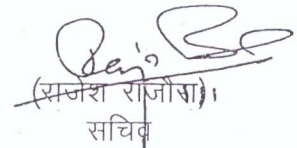 (राजेश राजौरा)।
सचिव